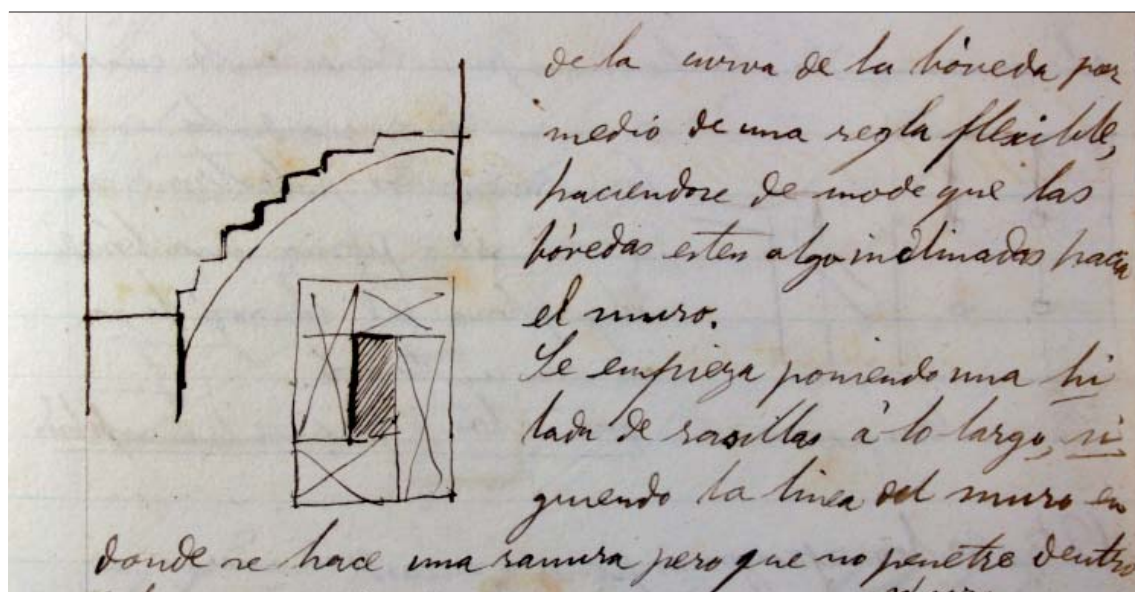 de la curva de la bóveda por
medio de una regla flexible,
haciendose de modo que las
bóvedas esten algo inclinadas hacia
el muro.
Se empieza poniendo una hi
lada de rasillas à lo largo, si
guiendo la linea del muro en
donde se hace una ranura pero que no penetre dentro